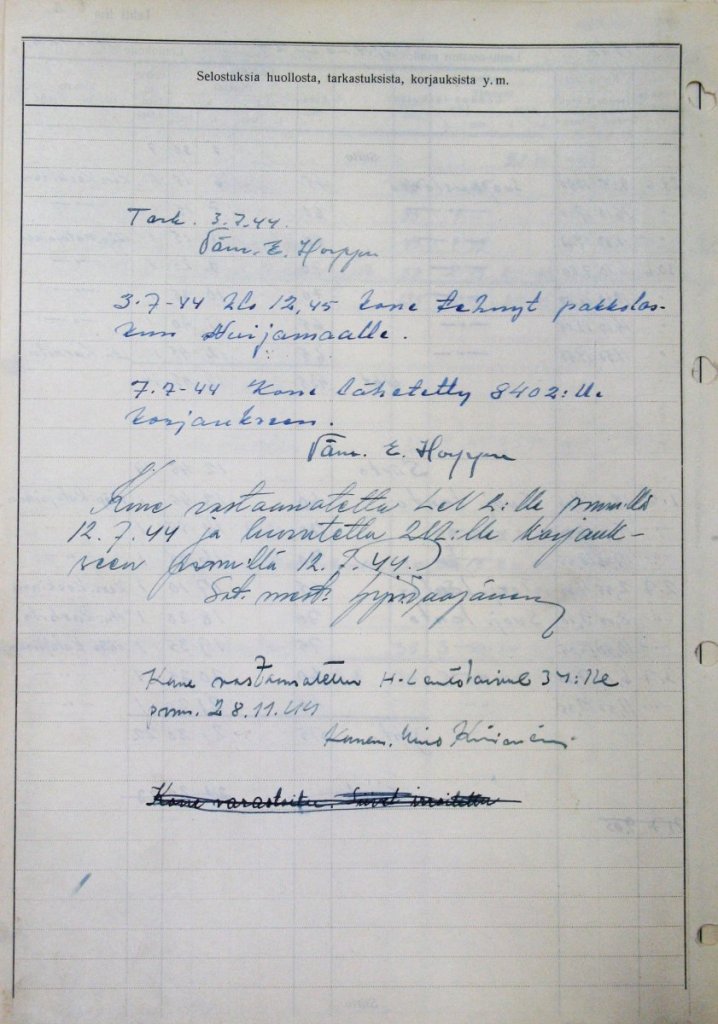 Selostuksia huollosta, tarkastuksista, korjauksista y. m.
Tark. 3.7.44.
Vänr. E. Horppu
3.7-44 klo 12,45 kone tehnyt pakkolas-
kun Nurjamaalle.
7.7-44 Kone lähetetty 8402:lle
korjaukseen.
Vänr. E. Horppu
Kone vastaanotettu LeV 2:lle pnmillä
12.7.44 ja luovutettu 2UZ:lle korjauk-
seen pnmiltä 12.7.44.
Sot. mest.
Kone vastaanotettu H-Lentolaivue 34:lle
pnm. 28.11.44
Konem.
Kone varastoitu. Siivet irroitettu